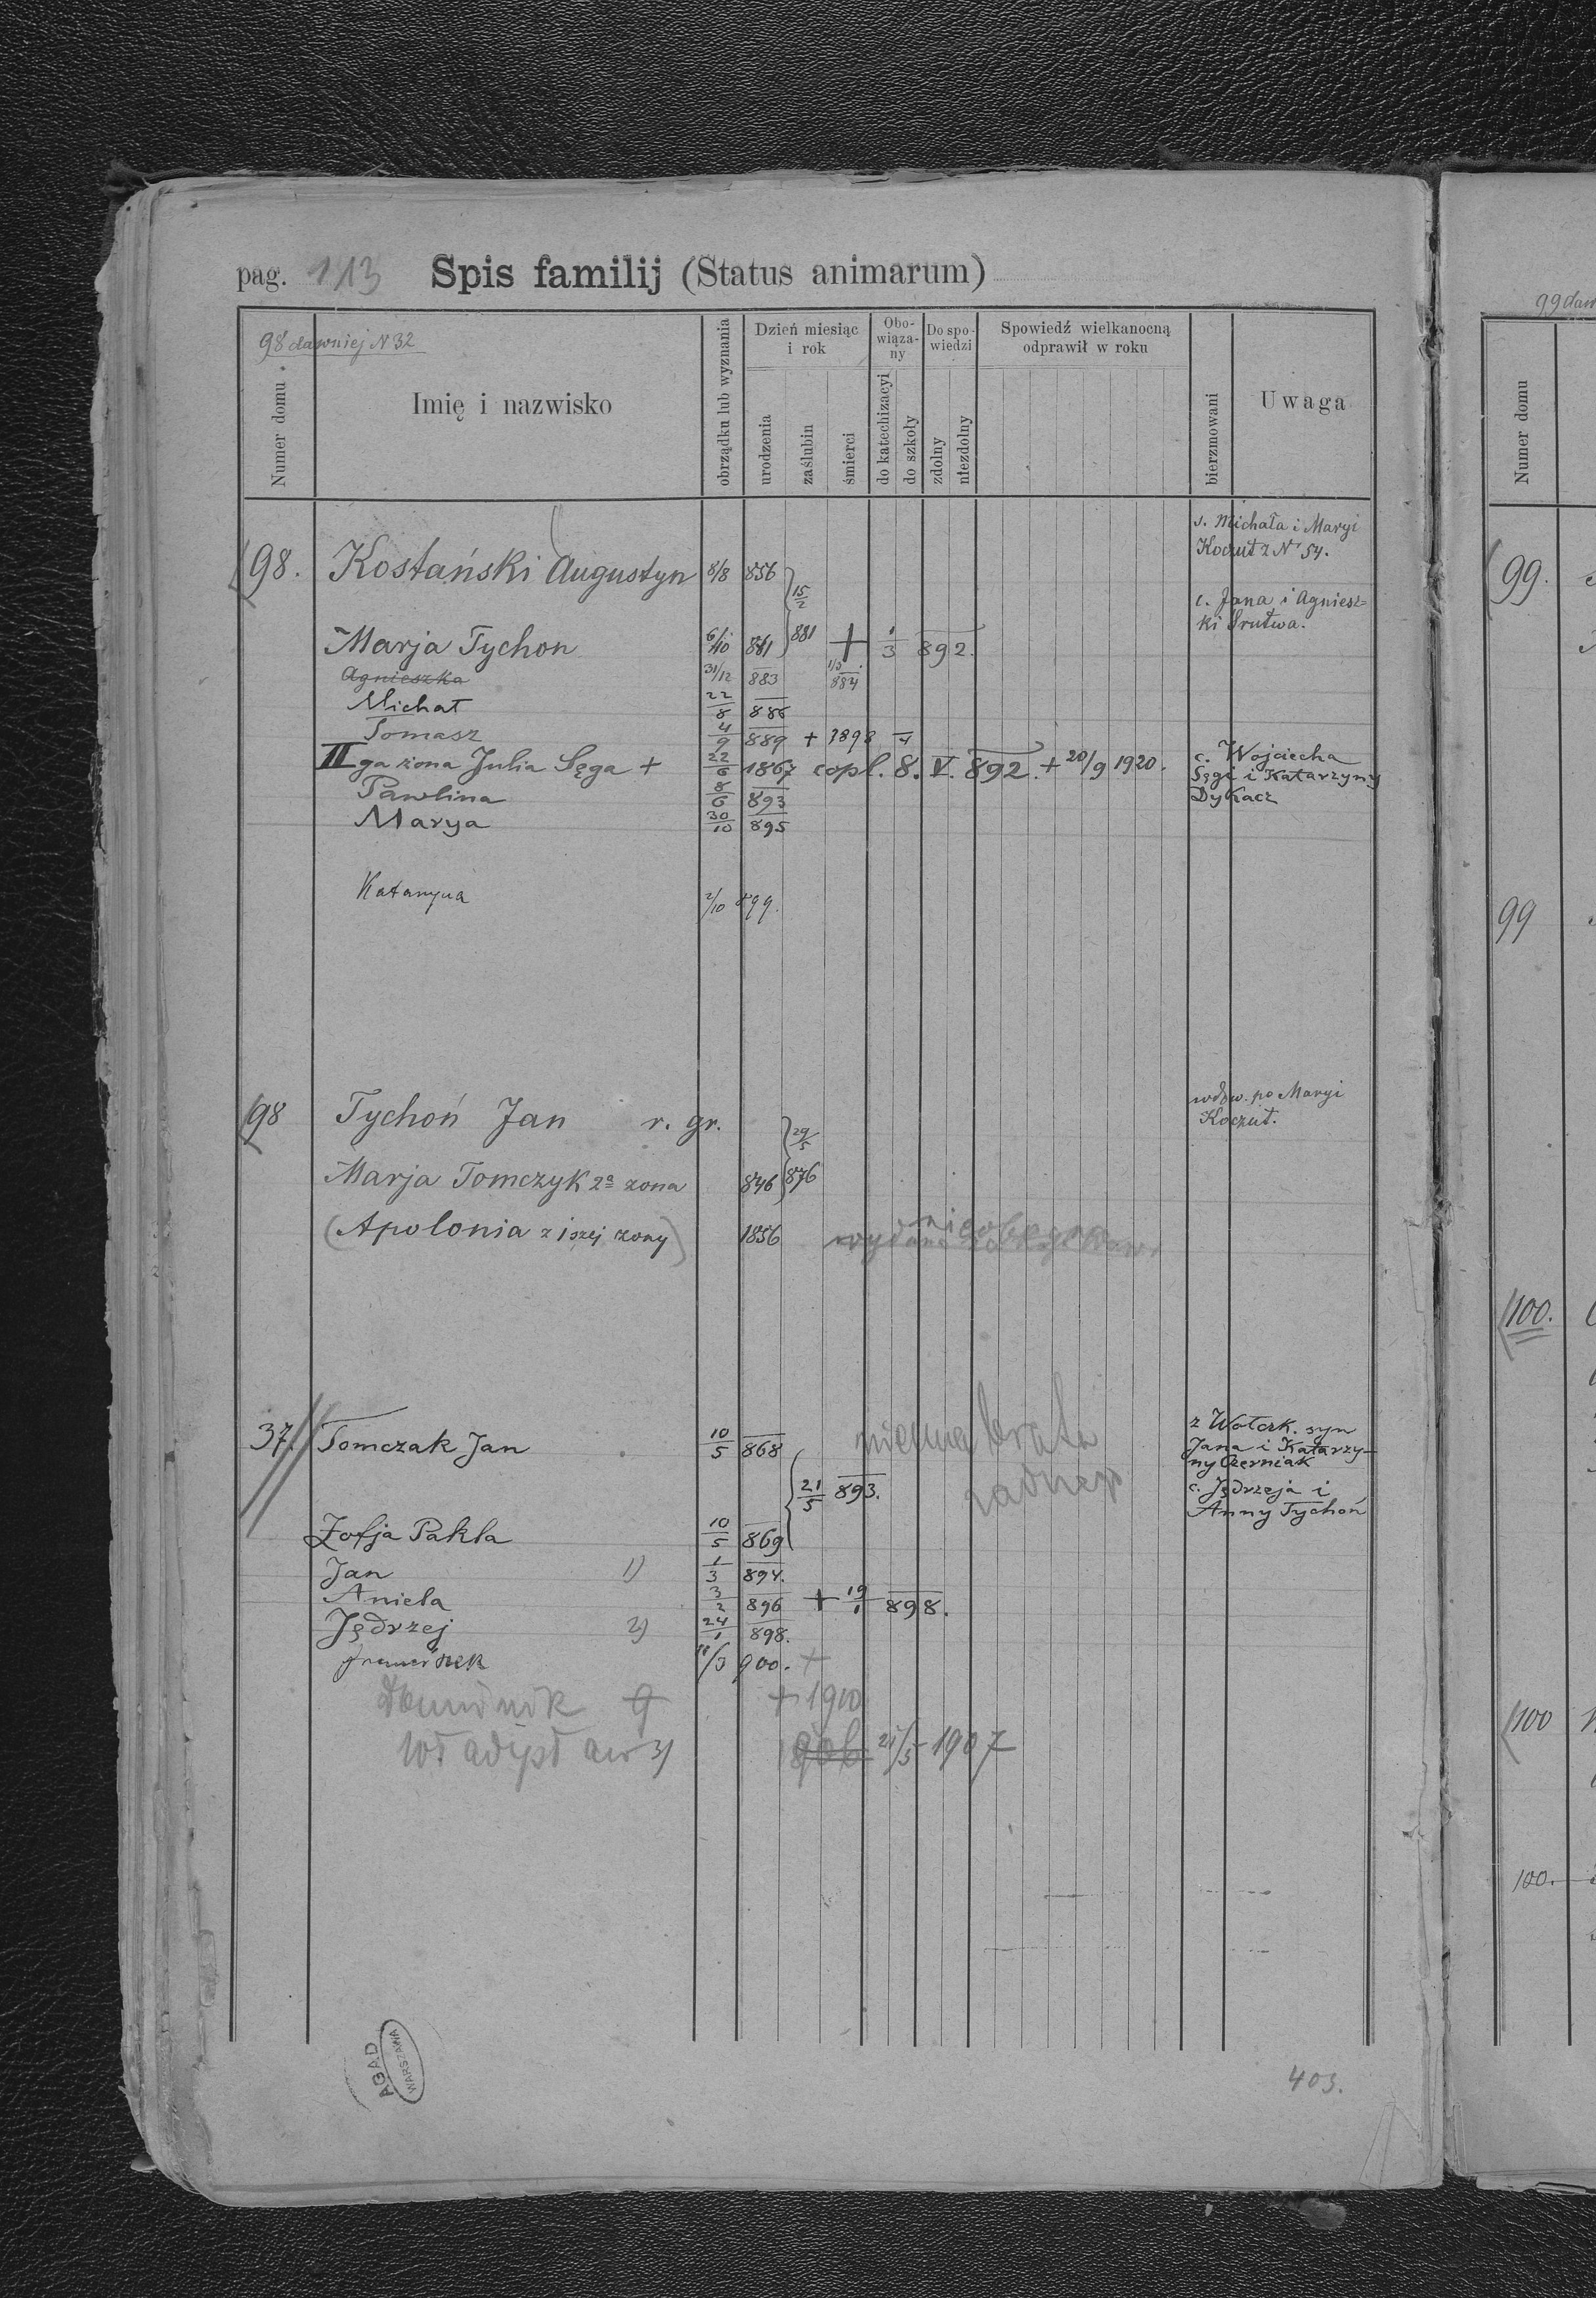 pag. 113 Spis familij (Status animarum)
98 dawniej N 32
Numer domu
Imię i nazwisko
obrządku lub wyznania
Dzień miesiąc i rok
urodzenia
zaślubin
śmierci
Obowiązany
do katechizacyi
do szkoły
Do spowiedzi
zdolny
niezdolny
Spowiedź wielkanocną odprawił w roku
bierzmowani
Uwaga
s. Michała i Maryi
Koczut z N 54.
98. Kostański Augustyn 8/8 856
15/2 881
c. Jana i Agniesz-
ki
Marja Tychon 6/10 861 + 1/3 892.
Agnieszka 31/12 883 1/3 884
Michał 22/8 886
Tomasz 4/9 889 + 1898
II ga żona Julia Sęga + 22/6 1867 copl. 8. V. 892. + 20/9 1920.
c. Wojciecha
Sęgi i Katarzyny
Dykacz
Pawlina 8/6 893
Marya 30/10 895
Katarzyna 2/10 899.
98 Tychoń Jan r. gr.
29/5 876
wdow. po Maryi
Koczut.
Marja Tomczyk 2a żona 846
(Apolonia z 1szej żony) 1856
37. Tomczak Jan 10/5 868
niema brata
żadnego
z Wołczk. syn
Jana i Katarzy-
ny Czerniak
21/5 893.
c. Jędrzeja i
Anny Tychoń
Zofja Pakla 10/5 869
Jan 1) 1/3 894.
Aniela 3/2 896 + 19/1 898.
Jędrzej 2) 24/1 898.
Franciszek /3 900. +
Dominik + 1910
Władysław 3) 1906 21/5 1907
AGAD
WARSZAWA
403.
99 daw
Numer domu
99.
99
100.
100
100.